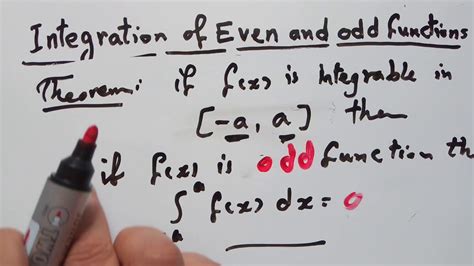 Integration of Even and odd functions
Theorem: if f(x) is integrable in
[-a, a] then
if f(x) is odd function th
∫ a f(x) dx = 0